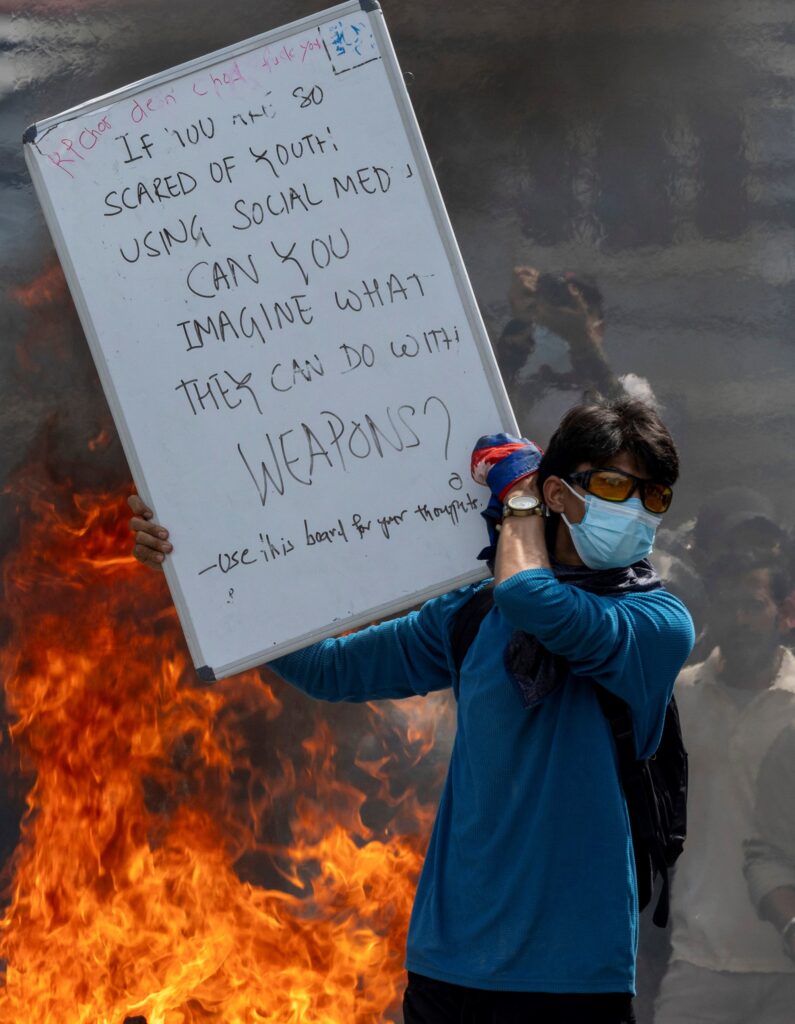 fuck you
IF YOU ARE SO
SCARED OF YOUTH
USING SOCIAL MEDI
CAN YOU
IMAGINE WHAT
THEY CAN DO WITH
WEAPONS?
- USE this board for your thoughts.